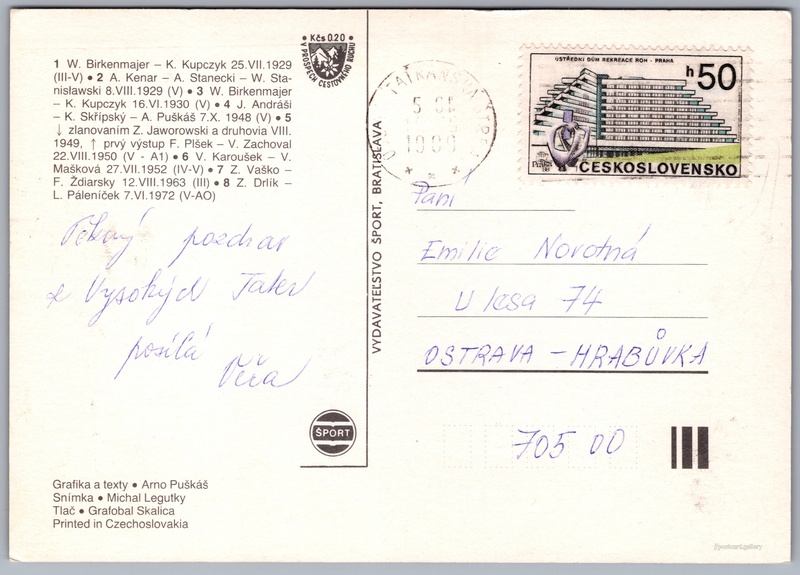 Kčs 0.20
V PROSPECH CESTOVNÉHO RUCHU
1 W. Birkenmajer – K. Kupczyk 25.VII.1929
(III-V) ● 2 A. Kenar – A. Stanecki – W. Sta-
nisławski 8.VIII.1929 (V) ● 3 W. Birkenmajer
– K. Kupczyk 16.VI.1930 (V) ● 4 J. Andráši
– K. Skřípský – A. Puškáš 7.X. 1948 (V) ● 5
↓ zlanovaním Z. Jaworowski a druhovia VIII.
1949, ↑ prvý výstup F. Plšek – V. Zachoval
22.VIII.1950 (V - A1) ● 6 V. Karoušek – V.
Mašková 27.VII.1952 (IV-V) ● 7 Z. Vaško –
F. Ždiarsky 12.VIII.1963 (III) ● 8 Z. Drlík –
L. Páleníček 7.VI.1972 (V-AO)
Pěkný pozdrav
z Vysokých Tater
posílá
Věra
ŠPORT
Grafika a texty ● Arno Puškáš
Snímka ● Michal Legutky
Tlač ● Grafobal Skalica
Printed in Czechoslovakia
VYDAVATEĽSTVO ŠPORT, BRATISLAVA
TATRANSKÁ
ÚSTŘEDNÍ DŮM REKREACE ROH - PRAHA
h 50
ČESKOSLOVENSKO
Paní
Emilie Novotná
U lesa 74
OSTRAVA – HRABŮVKA
705 00